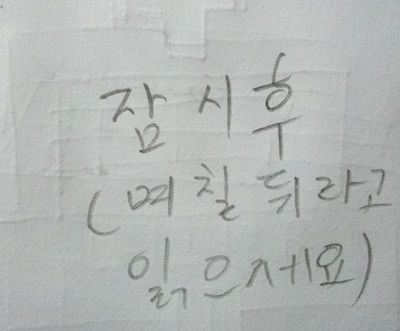 잠시후
(며칠뒤라고
읽으세요)